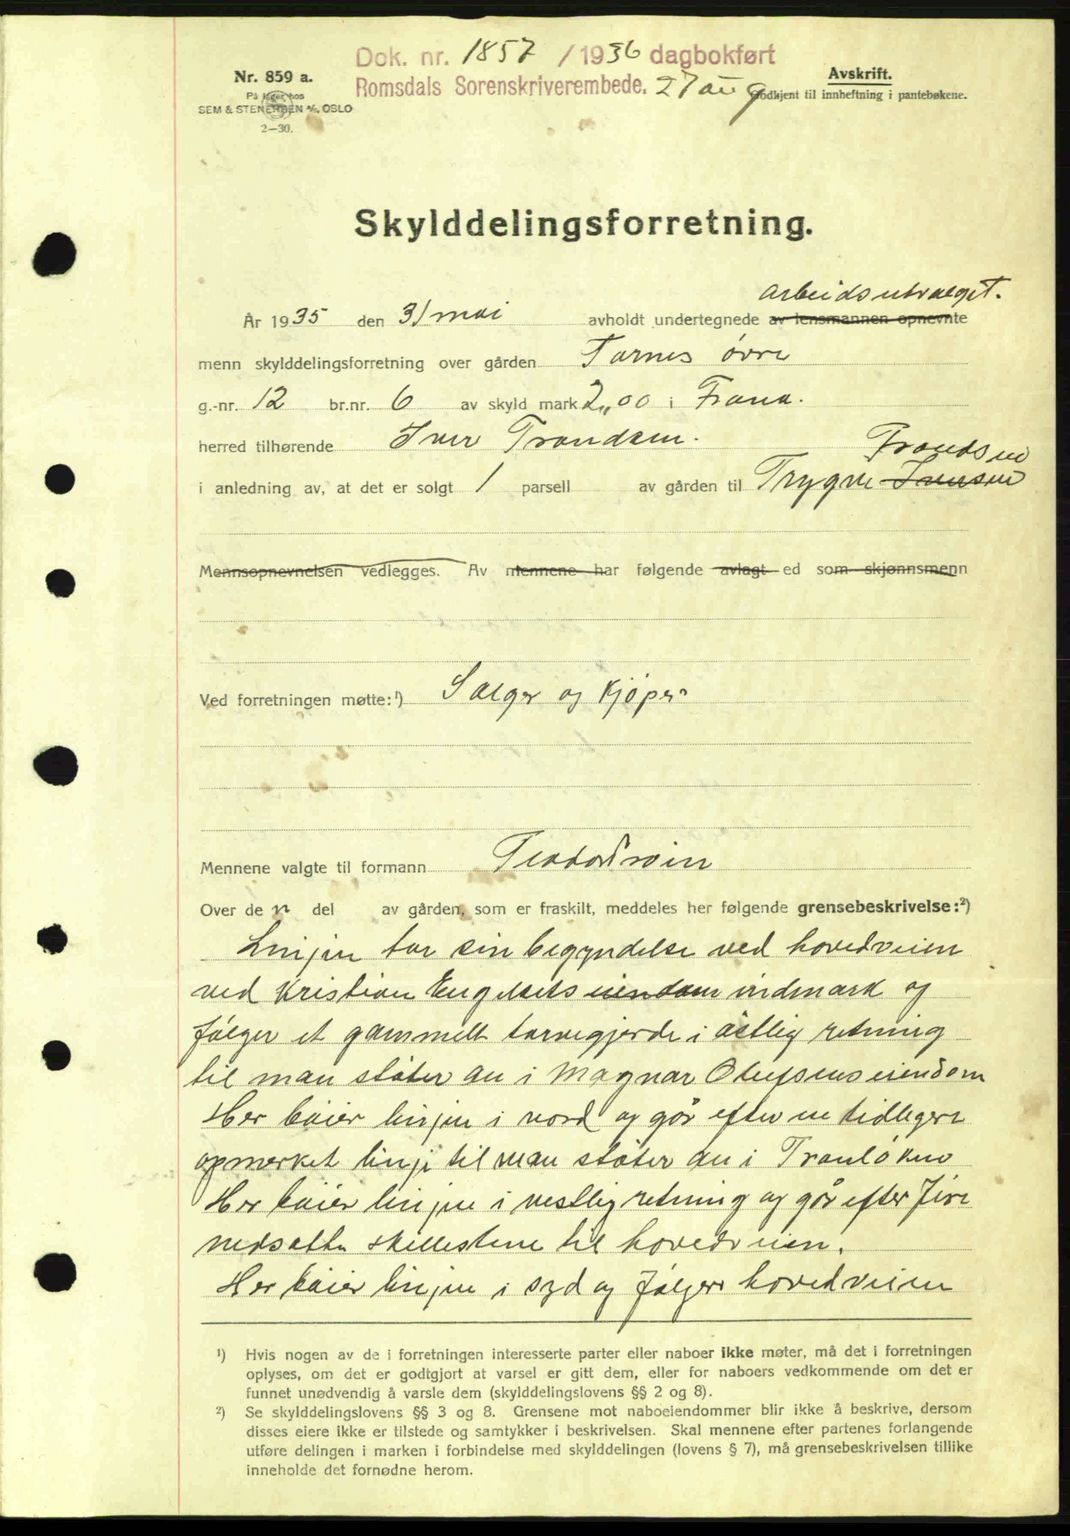 Dok. nr. 1857 / 1936 dagbokført
Romsdals Sorenskriverembede. 27 aug
Nr. 859 a.
På lager hos
SEM & STENERSEN A/S, OSLO
2—30.
Avskrift.
Godkjent til innheftning i pantebøkene.
Skylddelingsforretning.
arbeidsutvalget.
År 1935 den 31 mai avholdt undertegnede av lensmannen opnevnte
menn skylddelingsforretning over gården Tornes övre
g.-nr. 12 br.nr. 6 av skyld mark 2,00 i Frana.
herred tilhørende Iver Trondsen.
Trondsen
i anledning av, at det er solgt 1 parsell av gården til Trygve Iversen
Mennsopnevnelsen vedlegges. Av mennene har følgende avlagt ed som skjønnsmenn
Ved forretningen møtte:¹) Sælger og kjöper
Mennene valgte til formann
Over den del av gården, som er fraskilt, meddeles her følgende grensebeskrivelse:²)
Linjen tar sin begyndelse ved hovedveien
ved Kristian Engelsets eiendom indmark og
följer et gammelt torvegjerde i östlig retning
til man stöter an i Magnar Olufsens eiendom
Her böier linjen i nord og går efter en tidligere
opmerket linje til man stöter an i
Her böier linjen i vestlig retning og går efter fire
nedsatte skillestene til hovedveien.
Her böier linjen i syd og fölger hovedveien
¹) Hvis nogen av de i forretningen interesserte parter eller naboer ikke møter, må det i forretningen
oplyses, om det er godtgjort at varsel er gitt dem, eller for naboers vedkommende om det er
funnet unødvendig å varsle dem (skylddelingslovens §§ 2 og 8).
²) Se skylddelingslovens §§ 3 og 8. Grensene mot naboeiendommer blir ikke å beskrive, dersom
disses eiere ikke er tilstede og samtykker i beskrivelsen. Skal mennene efter partenes forlangende
utføre delingen i marken i forbindelse med skylddelingen (lovens § 7), må grensebeskrivelsen tillike
inneholde det fornødne herom.